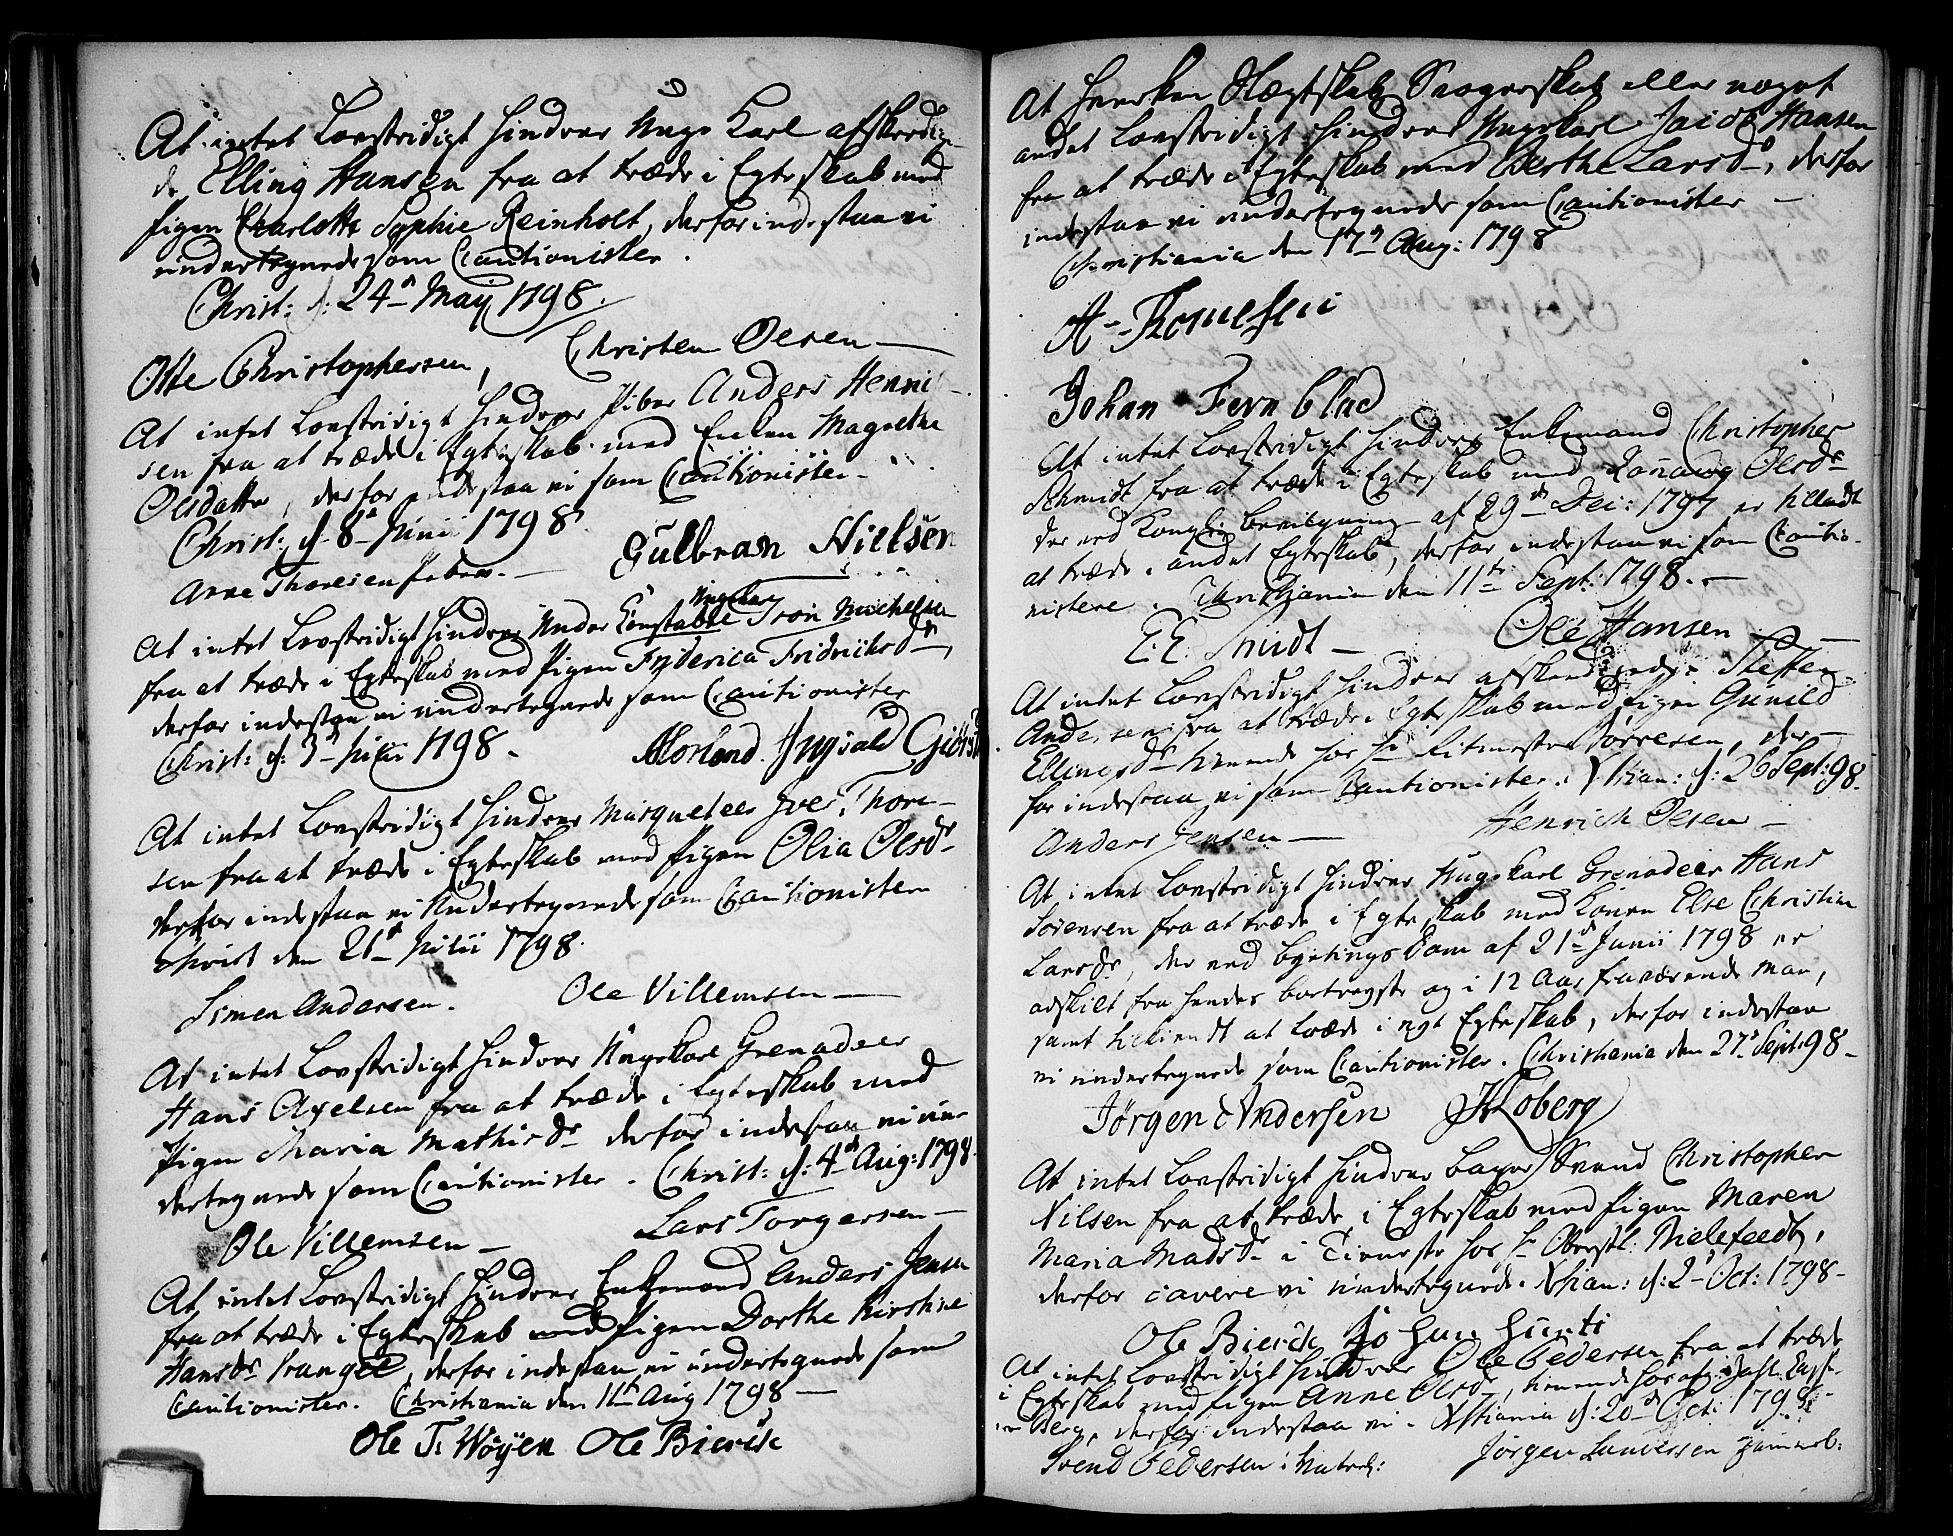 At intet Lovstridigt hindrer Unge Karl afskeedig-
de Elling Hansen fra at træde i Egteskab med
Pigen Charlotte Sophie Reinholt, derfor indestaa vi
undertegnede som Cautionister.
Christ: d: 24de May 1798.
Otte Christophersen, Christen Olsen
At intet Lovstridigt hindrer Piber Anders Henric-
sen fra at træde i Egteskab med Enken Magrethe
Olsdatter, derfor indestaa vi som Cautionister.
Christ: d. 8de Junii 1798.
Arne Thoresen Piber. Gulbran Nielsen
At intet Lovstridigt hindrer Under Constable Ungekarl Tron Michelsen
fra at træde i Egteskab med Pigen Friderica Fridrichsdr,
derfor indestaa vi undertegnede som Cautionister
Christ: d: 3 1798. Ingvald
At intet Lovstridigt hindrer Musqueteer Iver Thore-
sen fra at træde i Egteskab med Pigen Olia Olsdr
derfor indestaa vi Undertegnede som Cautionister
Christ den 21de 1798.
Simen Andersen. Ole Villemsen
At intet Lovstridigt hindrer Ungekarl Grenadeer
Hans Axelsen fra at træde i Egteskab med
Pigen Maria Mathisdr derfor indestaa vi un-
dertegnede som Cautionister. Christ: d: 4de Aug: 1798.
Ole Villemsen Lars Torgersen
At intet Lovstridigt hindrer Enkemand Anders Jensen
fra at træde i Egteskab med Pigen Dorthe Kirstine
Hansdr Prangel, derfor indestaa vi undertegnede som
Cautionister. Christiania den 11te Aug 1798
Ole T. Wøyen Ole Bierck
At hverken Slægtskab, Svogerskab eller noget
andet Lovstridigt hindrer Ungekarl Jacob Hansen
fra at træde i Egteskab med Berthe Larsdr, derfor
indestaa vi undertegnede som Cautionister
Christiania den 17de Aug: 1798
A.
Johan Fernblad
At intet Lovstridigt hindrer Enkemand Christopher
Schmidt fra at træde i Egteskab med Ronnaug Olsdr
der ved Kongl: bevilgning af 29de Dec: 1797 er tilladt
at træde i andet Egteskab, derfor indestaa vi som Cautio-
nistere. Christiania den 11te Sept: 1798.
E. E. Smidt Ole Hansen
At intet Lovstridigt hindrer afskeedigede Steffen
Andersen fra at træde i Egteskab med Pigen Gunild
Ellingsdr tienende hos Hr Ritmester Tørresen, der-
for indestaa vi som Cautionister. Xtian: d: 26 Sept: 98.
Anders Jensen Henrich Olsen
At intet Lovstridigt hindrer Ungekarl Grenadeer Hans
Sørensen fra at træde i Egteskab med Konen Else Christine
Larsdr, der ved bytings Dom af 21de Junii 1798 er
adskilt fra hendes bortrøgte og i 12 Aar fraværende Man,
samt tilkiendt at træde i nyt Egteskab, derfor indestaa
vi undertegnede som Cautionister. Christiania den 27de Sept: 98
Jørgen Andersen Koberg
At intet Lovstridigt hindrer bager Svend Christopher
Nilsen fra at træde i Egteskab med Pigen Maren
Maria Madsdr i Tieneste hos Hr Oberstl: Bielefeldt,
derfor cavere vi undertegnede. Xtian: d: 2de Oct: 1798
Ole Bierck Johan
At intet Lovstridigt hindrer Ole Pedersen fra at træde
i Egteskab med Pigen Anne Olsdr, tienende hos
Berg, derfor indestaa vi. Xstiania d: 20de Oct: 1798
Svend Pedersen Jørgen